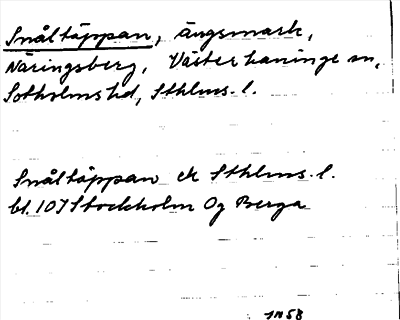 Snåltäppan, ängsmark,
Näringsberg, Västerhaninge sn,
Sotholms hd, Sthlms. l.
Snåltäppan ek Sthlms. l.
bl. 107 Stockholm Og Berga
1958